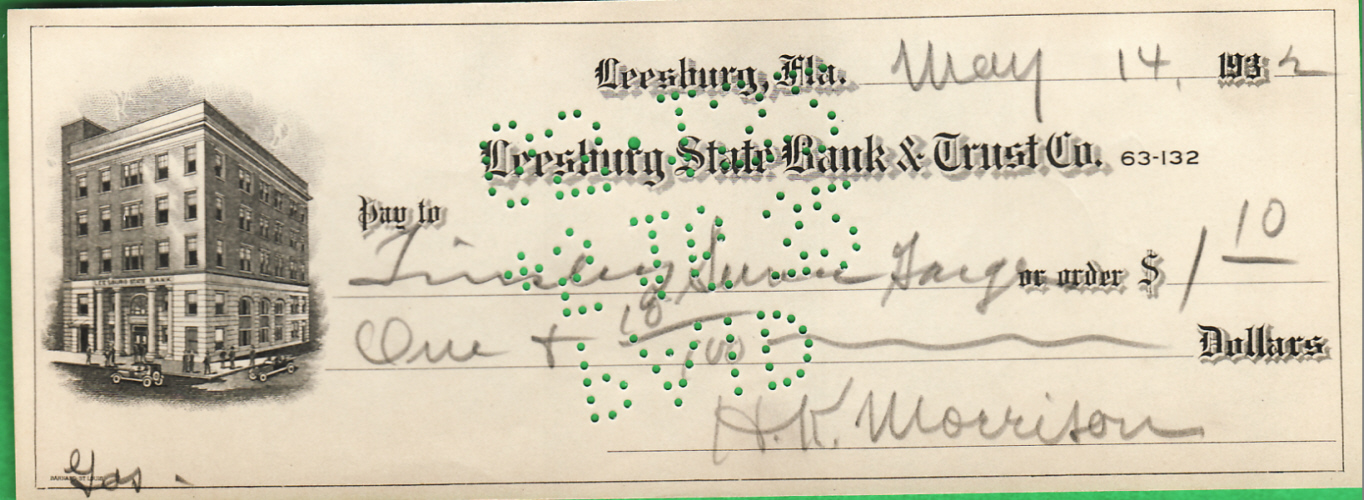 Leesburg, Fla. May 14, 1932
Leesburg State Bank & Trust Co. 63-132
LEESBURG STATE BANK
Pay to
Tinsley Garg or order $ 1 10
One + 10/100 Dollars
H.K. Morrison
Gas -
PAID